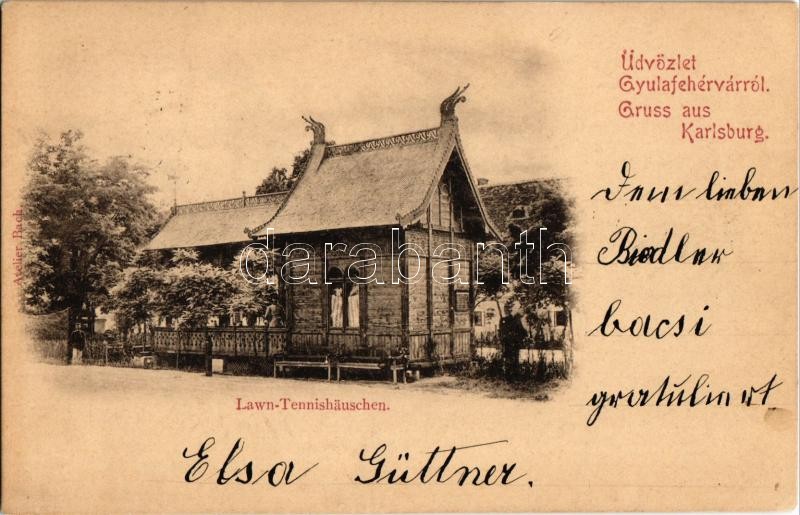 Üdvözlet
Gyulafehérvárról.
Gruss aus
Karlsburg.
Dem lieben
Biedler
bacsi
gratuliert
Atelier Bach.
darabanth.com
Lawn-Tennishäuschen.
Elsa Güttner.